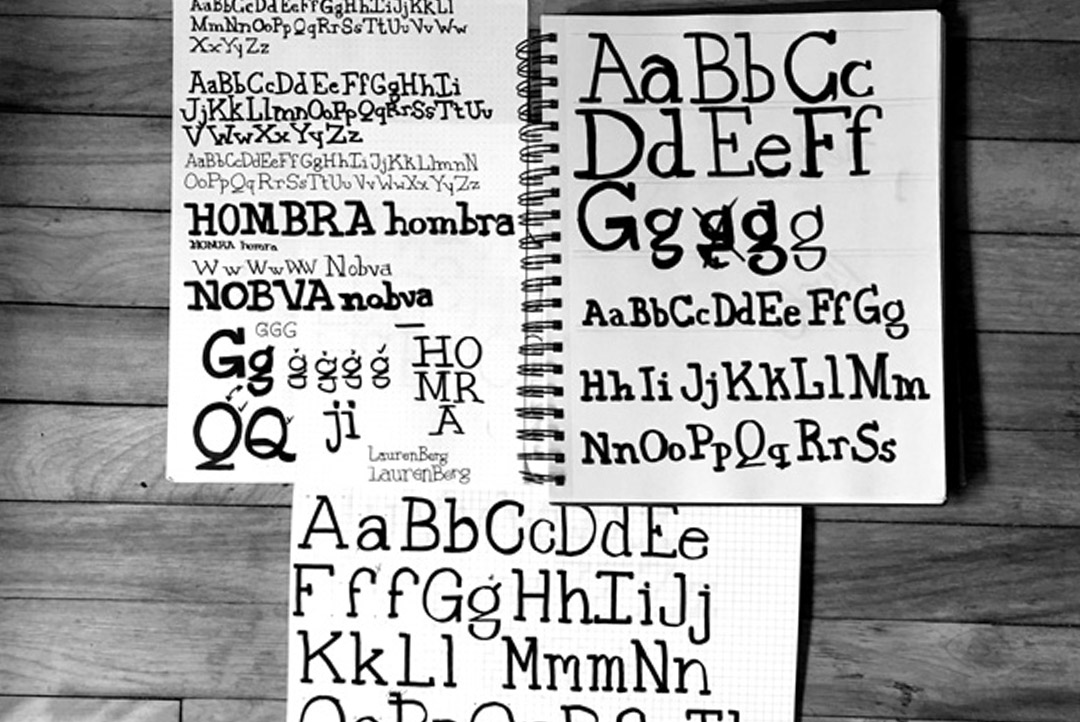 AaBbCcDdEeFfGgHhIiJjKkLl
MmNnOoPpQqRrSsTtUuVvWw
XxYyZz
AaBbCcDdEeFfGgHhIi
JjKkLlmnOoPpQqRrSsTtUu
VWwXxYyZz
AaBbCcDdEeFfGgHhIiJjKkLlmnN
OoPpQqRrSsTtUuVvWwXxYyZz
HOMBRA hombra
HOMBRA homra
WwWwWW Nobva
NOBVA nobva
GGG
Gg g g g g
HO
MR
A
QQ ji
LaurenBerg
LaurenBerg
AaBbCc
DdEeFf
Gg g g g
AaBbCcDdEeFfGg
HhIiJjKkLlMm
NnOoPpQqRrSs
AaBbCcDdEe
FffGgHhIiJj
KkLl MmmNn